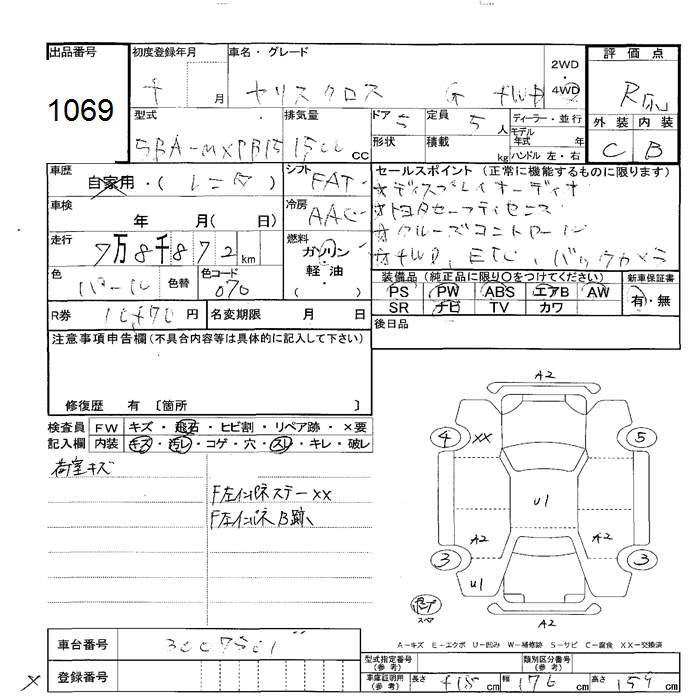 出品番号 初度登録年月 車名・グレード 2WD・4WD 評価点
1069 年 月 ヤリスクロス G 4WD
外装 内装
C B
型式 排気量 ドア 5 定員 5 人 ディーラー・並行
5BA-MXPB15 1500 CC 形状 積載 kg モデル年式 年
ハンドル 左・右
車歴 シフト セールスポイント (正常に機能するものに限ります)
自家用・(レンタ) FAT
☆ディスプレイオーディオ
車検 年 月(日) 冷房 AAC
☆トヨタセーフティセンス
☆クルーズコントロール
走行 7万8千872km 燃料 ガソリン・軽油・( )
☆4WD, ETC, バックカメラ
色 パール 色替 色コード 070
装備品 (純正品に限り○をつけてください) 新車保証書
PS PW ABS エアB AW 有・無
SR ナビ TV カワ
R券 10470円 名変期限 月 日 後日品
注意事項申告欄 (不具合内容等は具体的に記入して下さい)
修復歴 有 〔箇所 〕
検査員 FW キズ・飛石・ヒビ割・リペア跡・×要
記入欄 内装 キズ・汚レ・コゲ・穴・スレ・キレ・破レ
荷室キズ
F左インパネステーXX
F左インパネB跡
A2
4 XX 5
U1
A2 A2
3 3
U1
スペア
A2
A-キズ E-エクボ U-凹み W-補修跡 S-サビ C-腐食 XX-交換済
車台番号 3007501
登録番号
型式指定番号(参考) 類別区分番号(参考)
車庫証明用(参考) 長さ 418 cm 幅 176 cm 高さ 159 cm